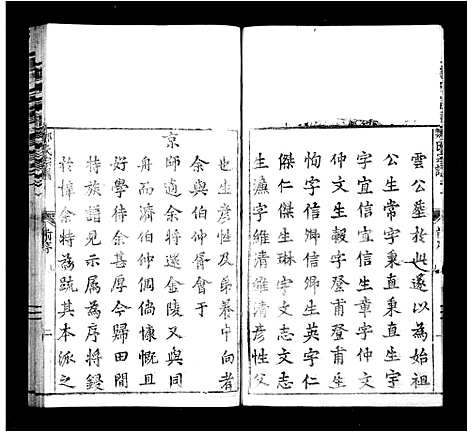 雲公墓於此遂以為始祖
公生常字秉直生宗
字宜信宜信生章字
仲文生毅字登甫登甫生
恂字信卿信卿生英字仁
傑仁傑生琳字文志文志
生濂字維清維清彦性父
也生彦性及弟養中向者
余與伯仲胥會于
京師適余將選金陵又與同
舟而濟伯仲倜倘慷慨且
好學待余甚厚今歸田間
特族譜見示屬為序將鋟
於梓余特為䟽其本派之